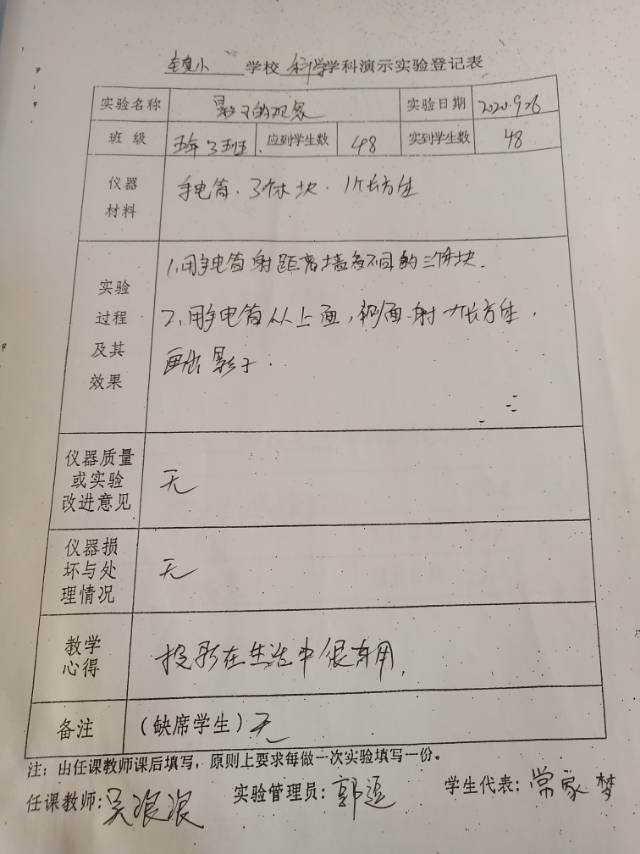 小 学校 科学学科演示实验登记表
实验名称 影子的观察 实验日期 2020.9.26
班 级 五年3班 应到学生数 48 实到学生数 48
仪器
材料
手电筒、3个木块、1个长方体
实验
过程
及其
效果
1.用手电筒射距离墙各不同的三个木块.
2.用手电筒从上面,侧面,射一个长方体,
画出影子.
仪器质量
或实验
改进意见
无
仪器损
坏与处
理情况
无
教学
心得
投影在生活中很有用.
备注 (缺席学生)无
注:由任课教师课后填写,原则上要求每做一次实验填写一份。
任课教师:吴浪浪 实验管理员:郭 学生代表:常家梦